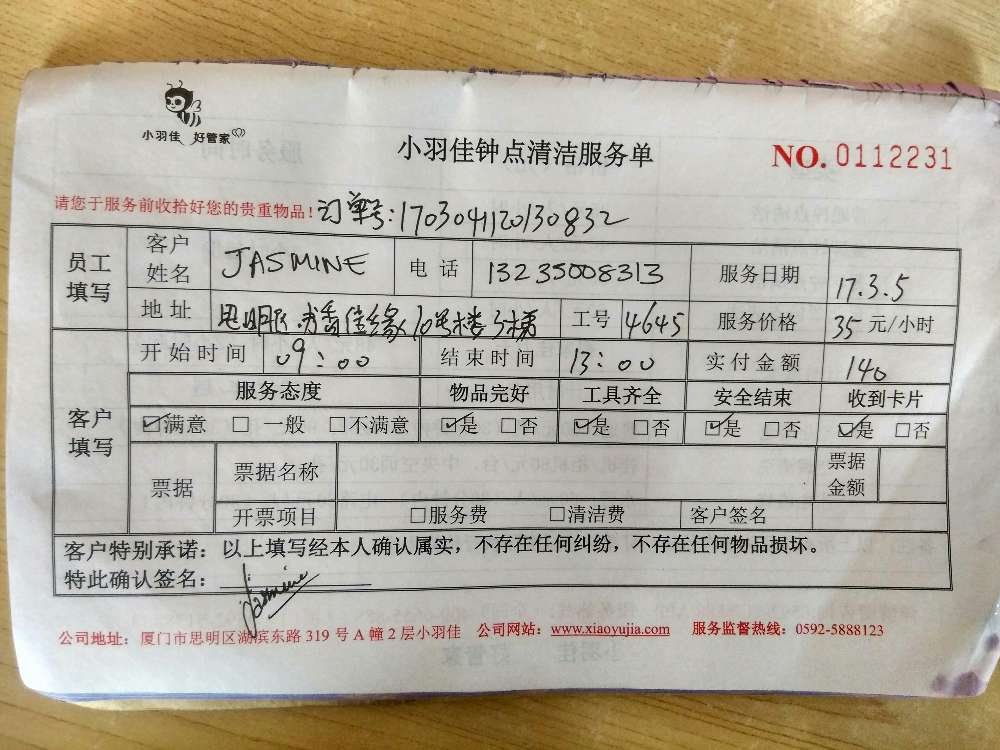 小羽佳 好管家
小羽佳钟点清洁服务单
NO. 0112231
请您于服务前收拾好您的贵重物品！订单号:170304120130832
员工填写 客户姓名 JASMINE 电话 13235008313 服务日期 17.3.5
地址 思明区 佳缘 10号楼 3楼 工号 4645 服务价格 35 元/小时
开始时间 09:00 结束时间 13:00 实付金额 140
客户填写 服务态度 物品完好 工具齐全 安全结束 收到卡片
☑满意 □一般 □不满意 ☑是 □否 ☑是 □否 ☑是 □否 ☑是 □否
票据 票据名称 票据金额
开票项目 □服务费 □清洁费 客户签名
客户特别承诺：以上填写经本人确认属实，不存在任何纠纷，不存在任何物品损坏。
特此确认签名：Jasmine
公司地址：厦门市思明区湖滨东路 319 号 A 幢 2 层小羽佳 公司网站：www.xiaoyujia.com 服务监督热线：0592-5888123